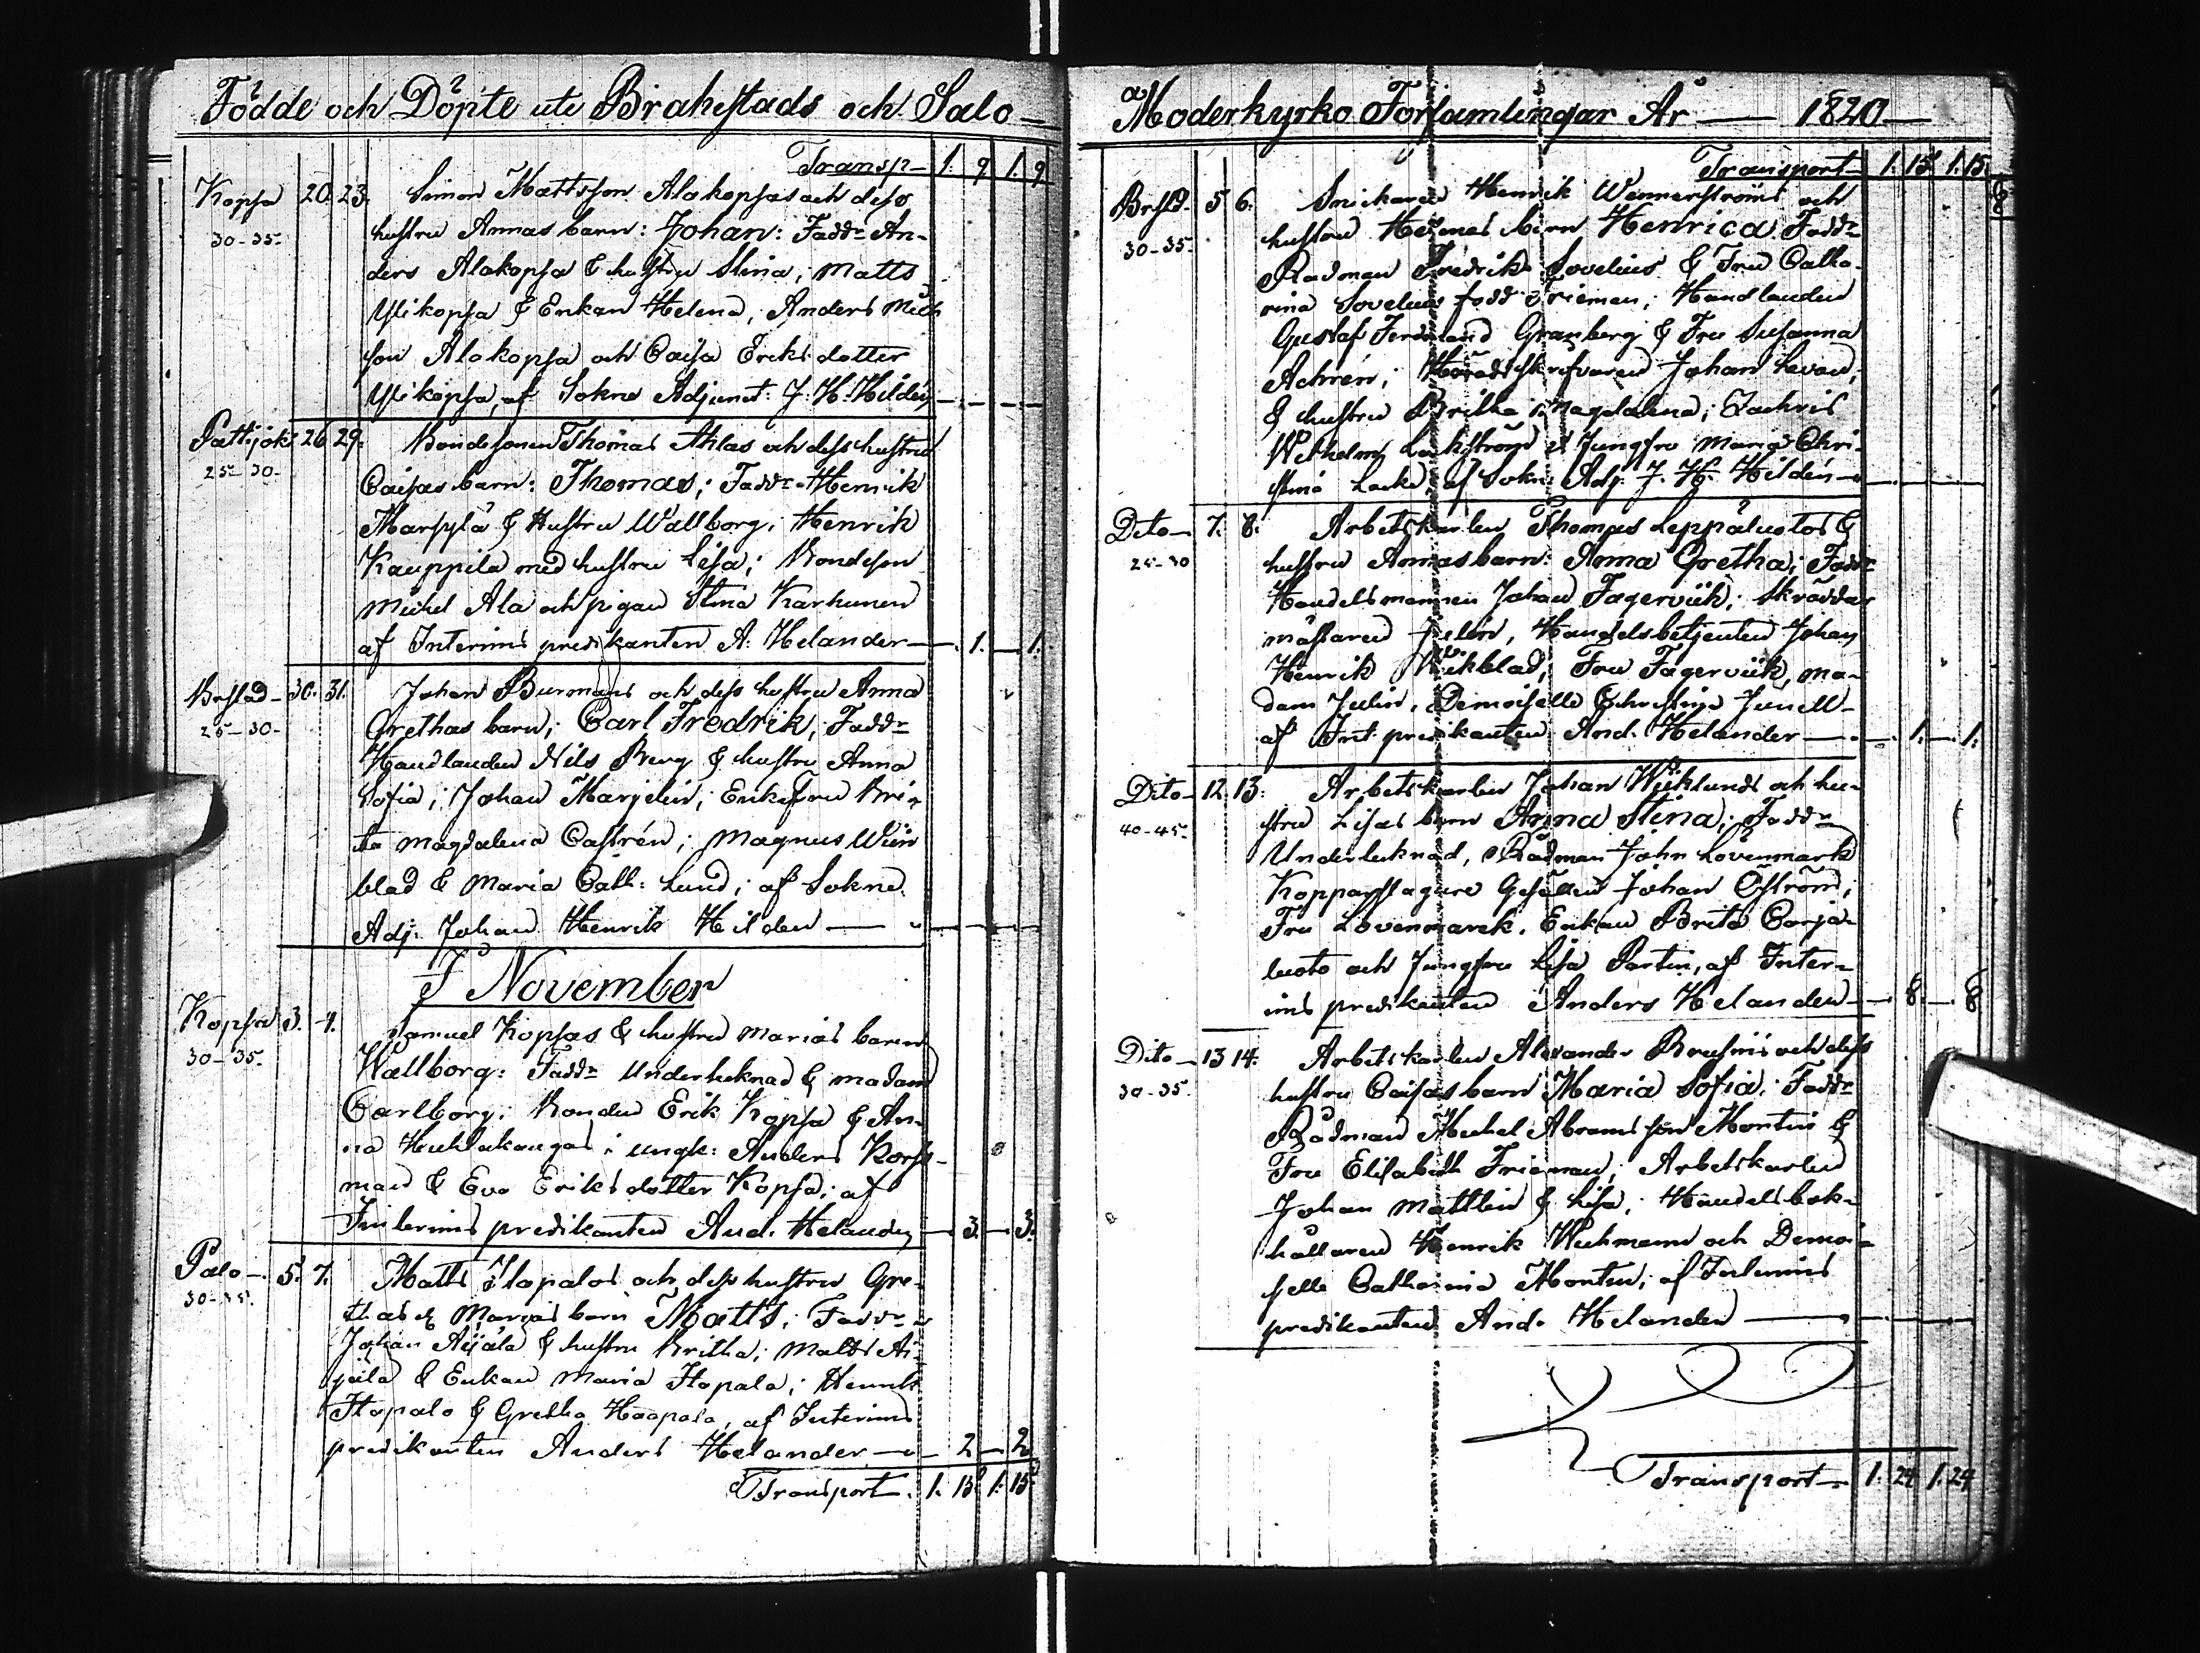 Födde och Döpte uti Brahestads och Salo
Transp 1. 9 1. 9
Kopsa 20. 23. Simon Mattsson Alakopsas och dess
30-35 hustru Annas barn: Johan: Fadd. An-
ders Alakopsa & hustru Stina, Matts
Ylikopsa & Enkan Helena, Anders Mich
son Alakopsa och Caisa Eriksdotter
Ylikopsa, af Sokne Adjunct: J. H. Hildén
Pattijoki 26 29. Bondesonen Thomas Ahlas och dess hustru
25-30 Caisas barn: Thomas; Fadd. Henrik
Marsylä & Hustru Wallborg, Henrik
Kauppila med hustru Lisa; Bondeson
Michel Ala och pigan Stina Karhunen
af Interims predikanten A. Helander 1. 1.
Brstad 30. 31. Johan Burmans och dess hustru Anna
25-30 Grethas barn; Carl Fredrik; Fadd.
Handlanden Nils Berg & hustru Anna
Sofia; Johan Marjelin; Enkefru Bri-
ta Magdalena Castrén; Magnus Wiin
blad & Maria Cath: Lund; af Sokne
Adj. Johan Henrik Hilden
I November
Kopsa 3. 4. Samuel Kopsas & hustru Marias barn
30-35. Wallborg: Fadd. Underteknad & madam
Carlborg; Bonden Erik Kopsa & An-
na Huhtakangas; ungk: Anders Kors
man & Eva Eriksdotter Kopsa; af
Interims predikanten And. Helander 3. 3.
Palo 5. 7. Matts Ilopalos och dess hustru Gre-
30-35. thas & Marias barn Matts; Fadd.
Johan Äijälä & hustru Britha; Matts Äi-
jälä & Enkan Maria Ilopala; Henrik
Ilopalo & Gretha Haapala, af Interims
predikanten Anders Helander 2 2
Transport. 1. 15. 1. 15
Moderkyrko Församlingar År 1820
Transport 1. 15. 1. 15.
Brstd. 5 6. Snickaren Henrik Wennerströms och
30-35. hustru barn Henrica Fadd.
Rådman Fredrik Sovelius & Fru Catha-
rina Sovelius född Frieman; Handlanden
Gustaf Ferdinand Granberg & Fru Susanna
Achrén; Häradskrifvaren Johan Levan;
& hustru Britha Magdalena; Zachris
Wilhelm & Jungfru Maria Chri-
stina af Sokn: Adj. J. H. Hildén
Dito 7. 8. Arbetskarlen Thomas Leppäluotos &
25-30 hustru Annas barn: Anna Gretha; Fadd.
Handelsmannen Johan Fagerviik; Skräddar
mästaren Julin, Handelsbetjenten Johan
Henrik Wikblad; Fru Fagerviik, ma-
dam Julin, Demoiselle Christina Junell
af Int. predikanten And. Helander 1. 1.
Dito 12. 13. Arbetskarlen Johan Wiiklunds och hu-
40-45. stru Lisas barn Anna Stina; Fadd.
Underteknad, Rådman John Lövenmark
Kopparslagare Gesällen Johan Öström;
Fru Lövenmark, Enkan Brita Corja-
luoto och Jungfru Lisa Portin, af Inter-
ims predikanten Anders Helander 8. 8
Dito 13 14. Arbetskarlen Alexander Brusins och dess
30-35. hustru Caisas barn Maria Sofia; Fadd.
Rådman Michel Abramsson Montin &
Fru Elisabeth Frieman; Arbetskarlen
Johan Mattlin & Lisa; Handelsbok-
hållaren Henrik Wichmann och Demoi-
selle Catharina Montin; af Interims
predikanten And. Helander
Transport 1. 24 1. 24